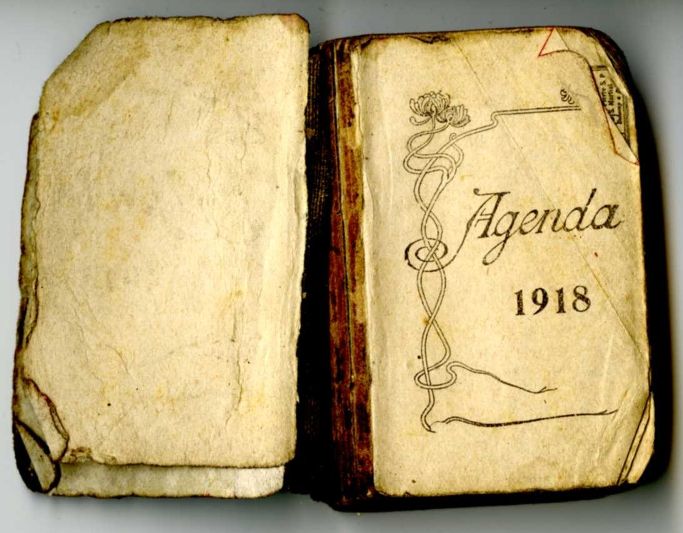 Agenda
1918